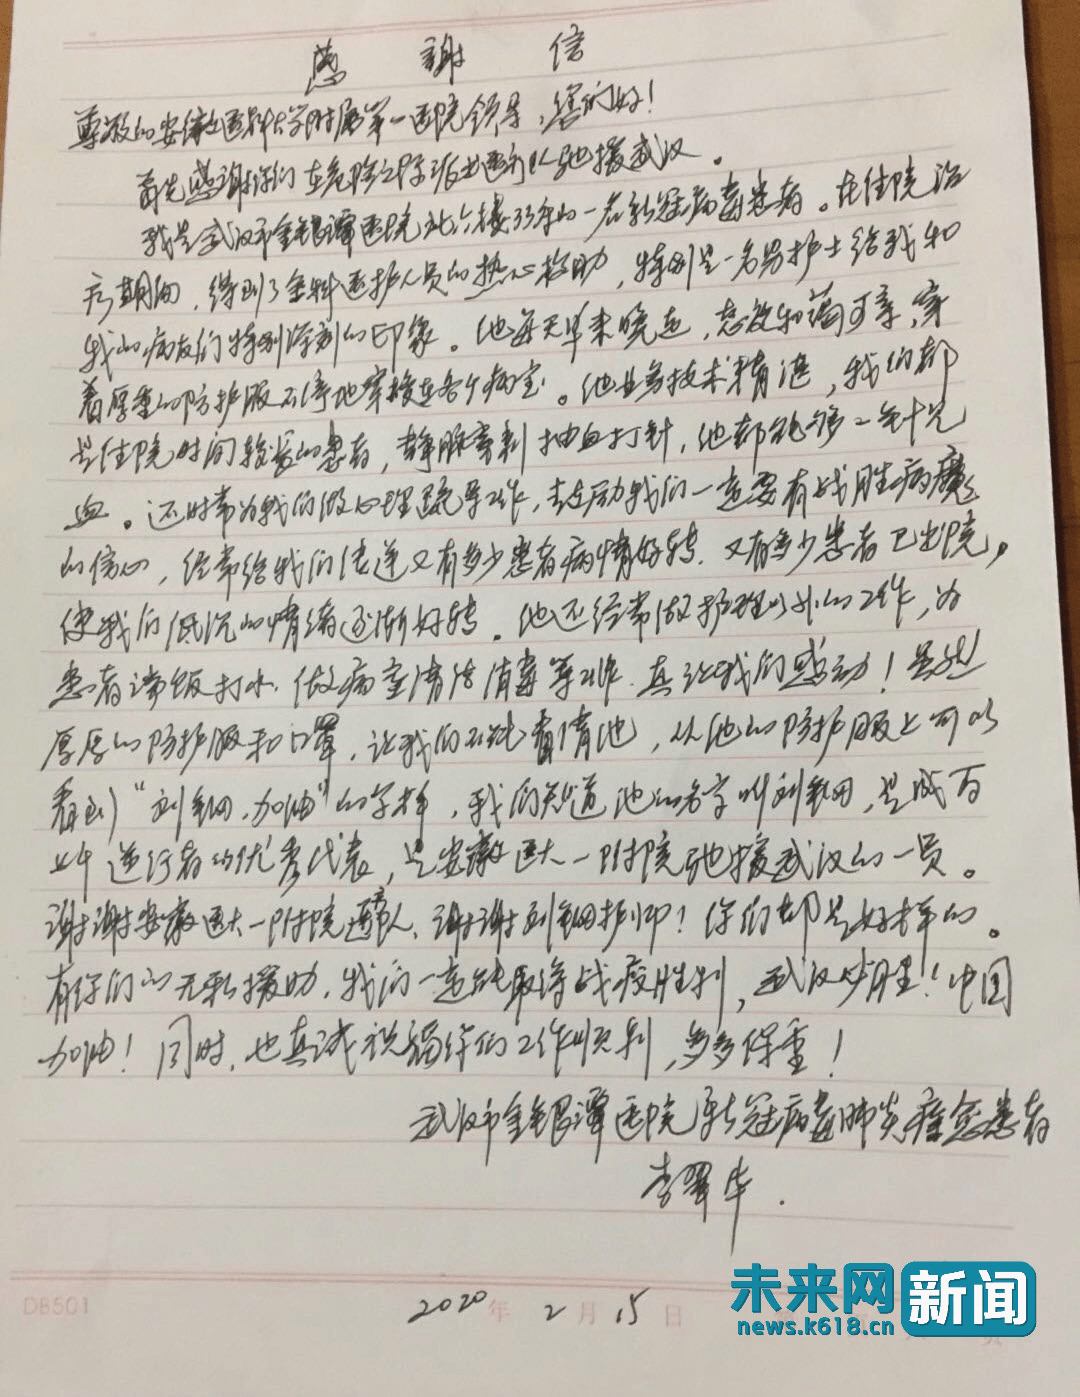 感謝信
尊敬的安徽医科大学附属第一医院领导，您们好！
首先感谢你们在危险之际派出医疗队驰援武汉。
我是武汉市金银潭医院北六楼33床的一名新冠病毒患者。在住院治
疗期间，得到了全科医护人员的热心救助，特别是一名男护士给我和
我的病友们特别深刻的印象。他每天早来晚走，态度和蔼可亲，穿
着厚重的防护服不停地穿梭在各个病室。他业务技术精湛，我们都
是住院时间较长的患者，静脉穿刺抽血打针，他都能够一针见
血。还时常为我们做心理疏导工作，鼓励我们一定要有战胜病魔
的信心，经常给我们传递又有多少患者病情好转，又有多少患者已出院，
使我们低沉的情绪逐渐好转。他还经常做护理以外的工作，为
患者端饭打水，做病室清洁消毒等工作，真让我们感动！虽然
厚厚的防护服和口罩，让我们不能看清他，从他的防护服上可以
看到"刘   ，加油"的字样，我们知道他的名字叫刘   ，是成百
上千逆行者的优秀代表，是安徽医大一附院驰援武汉的一员。
谢谢安徽医大一附院医疗队，谢谢刘   护师！你们都是好样的。
有你们的无私援助，我们一定能取得战疫胜利，武汉必胜！中国
加油！同时，也真诚祝福你们工作顺利，多多保重！
武汉市金银潭医院新冠病毒肺炎痊愈患者
李翠华.
DB501
2020年2月15日
未来网 新闻
news.k618.cn